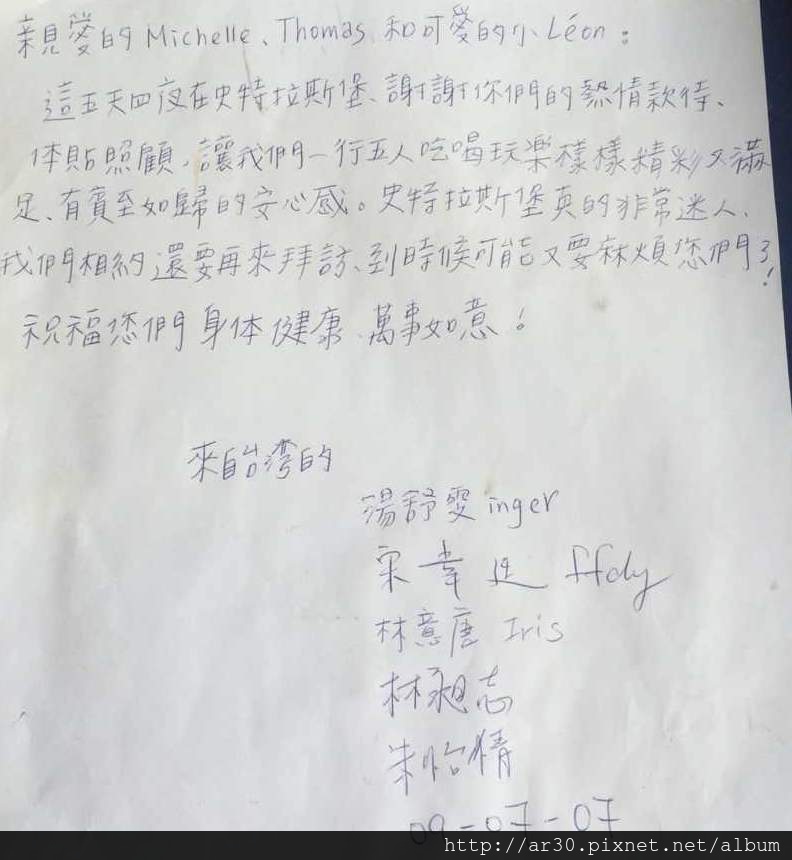 親愛的 Michelle、Thomas 和可愛的小 Léon：
這五天四夜在史特拉斯堡、謝謝你們的熱情款待、
体貼照顧，讓我們一行五人吃喝玩樂樣樣精彩又滿
足、有賓至如歸的安心感。史特拉斯堡真的非常迷人、
我們相約還要再來拜訪、到時候可能又要麻煩您們了！
祝福您們身体健康、萬事如意！
來自台灣的
湯舒雯 inger
宋幸 ffdy
林意唐 Iris
林昶志
朱怡情
09-07-07
http://ar30.pixnet.net/album